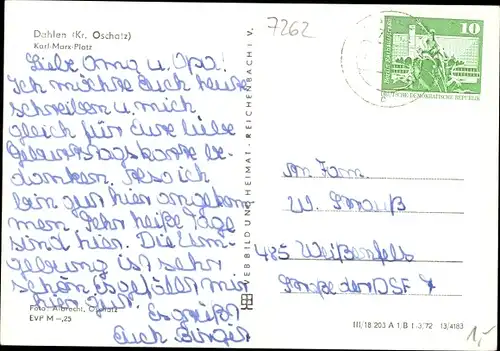 Dahlen (Kr. Oschatz)
Karl-Marx-Platz
7262
Liebe Oma u. Opa!
Ich möchte Euch heute
schreiben u. mich
gleich für Eure liebe
Geburtstagskarte be-
danken. Also ich
bin gut hier angekom-
men. Sehr heiße Tage
sind hier. Die Um-
gebung ist sehr
schön. Es gefällt mir
hier gut.
Es grüßt
Euch Birgit
Foto: Albrecht, Oschatz
EVP M -,25
VEB BILD UND HEIMAT · REICHENBACH I. V.
10
DEUTSCHE DEMOKRATISCHE REPUBLIK
An Fam.
W. Strauß
485 Weißenfels
Straße der DSF 4
III/18 203 A 1/B 1 3/72 13/4183
1,-